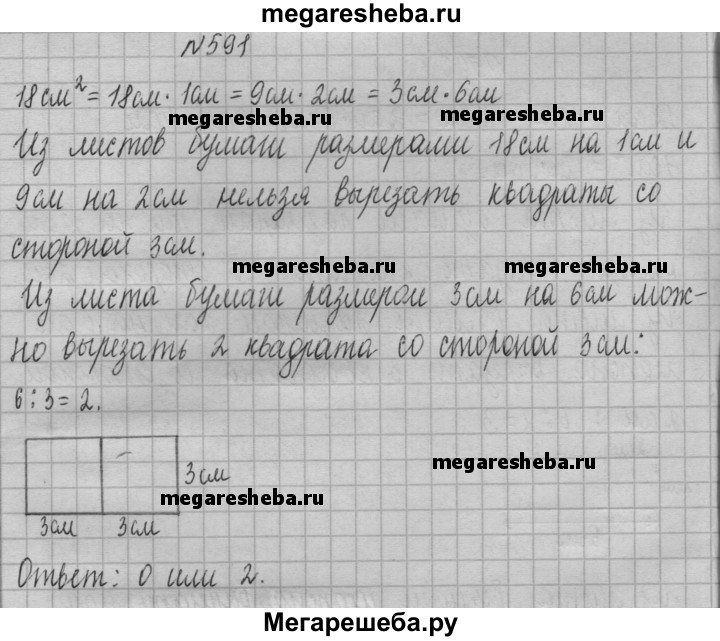 megaresheba.ru
№591
18см² = 18см · 1см = 9см · 2см = 3см · 6см
megaresheba.ru megaresheba.ru
Из листов бумаги размерами 18см на 1см и
9см на 2см нельзя вырезать квадраты со
стороной 3см.
megaresheba.ru megaresheba.ru
Из листа бумаги размером 3см на 6см мож-
но вырезать 2 квадрата со стороной 3см:
6 : 3 = 2.
3см
megaresheba.ru
megaresheba.ru
3см 3см
Ответ: 0 или 2.
Мегарешеба.ру